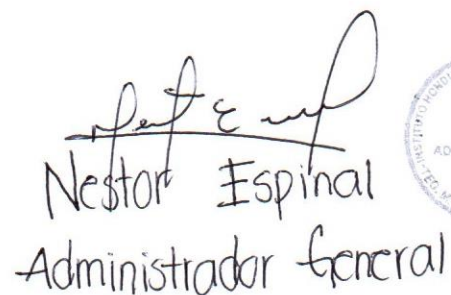 Nestor Espinal
Administrador General